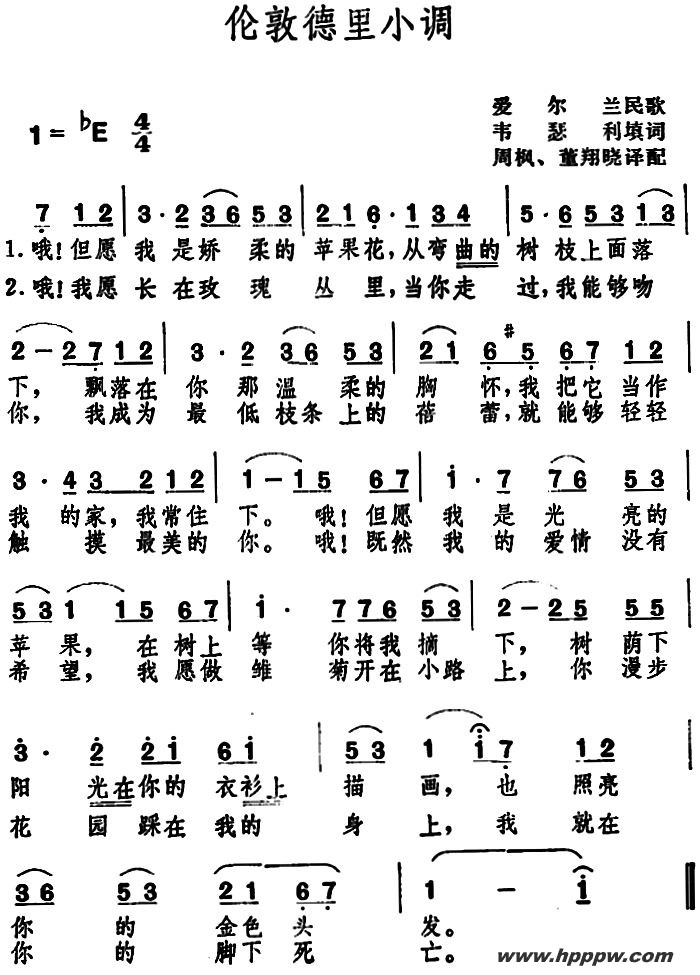 伦敦德里小调
1= ♭E 4/4
爱尔兰民歌
韦瑟利填词
周枫、董翔晓译配
7 1 2 | 3 · 2 3 6 5 3 | 2 1 6 · 1 3 4 | 5 · 6 5 3 1 3 |
1.哦!但愿 我是娇柔的 苹果花,从弯曲的 树枝上面落
2.哦!我愿 长在玫瑰 丛里,当你走 过,我能够吻
2 – 2 7 1 2 | 3 · 2 3 6 5 3 | 2 1 6 #5 6 7 1 2 |
下,飘落在 你那温柔的 胸怀,我把它当作
你,我成为 最低枝条上的 蓓蕾,就能够轻轻
3 · 4 3 2 2 1 2 | 1 – 1 5 6 7 | 1 · 7 7 6 5 3 |
我的家,我常住 下。哦!但愿 我是光亮的
触摸最美的 你。哦!既然 我的爱情没有
5 3 1 1 5 6 7 | 1 · 7 7 7 6 5 3 | 2 – 2 5 5 5 |
苹果,在树上 等你将我摘 下,树荫下
希望,我愿做 雏菊开在小路 上,你漫步
3 · 2 2 1 6 1 | 5 3 1 1 7 1 2 |
阳光在你的衣衫上 描画,也照亮
花园踩在我的 身上,我就在
3 6 5 3 2 1 6 7 | 1 – 1 ‖
你的金色头 发。
你的脚下死 亡。
www.hpppw.com